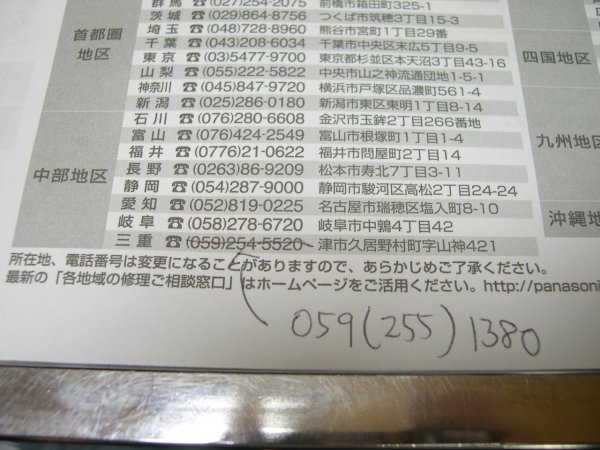 群馬 ☎(027)254-2075 前橋市箱田町325-1
茨城 ☎(029)864-8756 つくば市筑穂3丁目15-3
埼玉 ☎(048)728-8960 熊谷市宮町1丁目29番
首都圏地区
千葉 ☎(043)208-6034 千葉市中央区末広5丁目9-5
東京 ☎(03)5477-9700 東京都杉並区本天沼3丁目43-16
四国地区
山梨 ☎(055)222-5822 中央市山之神流通団地1-5-1
神奈川 ☎(045)847-9720 横浜市戸塚区品濃町561-4
新潟 ☎(025)286-0180 新潟市東区東明1丁目8-14
石川 ☎(076)280-6608 金沢市玉鉾2丁目266番地
富山 ☎(076)424-2549 富山市根塚町1丁目1-4
九州地区
福井 ☎(0776)21-0622 福井市問屋町2丁目14
中部地区
長野 ☎(0263)86-9209 松本市寿北7丁目3-11
静岡 ☎(054)287-9000 静岡市駿河区高松2丁目24-24
愛知 ☎(052)819-0225 名古屋市瑞穂区塩入町8-10
沖縄地
岐阜 ☎(058)278-6720 岐阜市中鶉4丁目42
三重 ☎(059)254-5520 津市久居野村町字山神421
所在地、電話番号は変更になることがありますので、あらかじめご了承ください。
最新の「各地域の修理ご相談窓口」はホームページをご活用ください。http://panasoni
059(255)1380